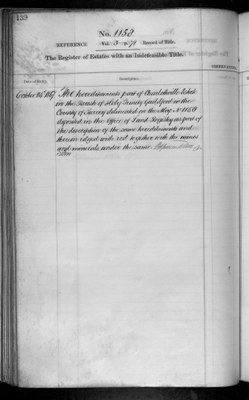 139
No. 1152
REFERENCE Vol. 3 N° 71 Record of Title.
The Register of Estate with an Indefeasible Title.
Description
October 26th 1867 The hereditaments part of Charlotteville Estate
in the Parish of Holy Trinity Guildford in the
County of Surrey delineated in the Map No 1152
deposited in the Office of Land Registry as part of
the description of the same hereditaments and
thereon edged with red together with the mines
and minerals under the same.